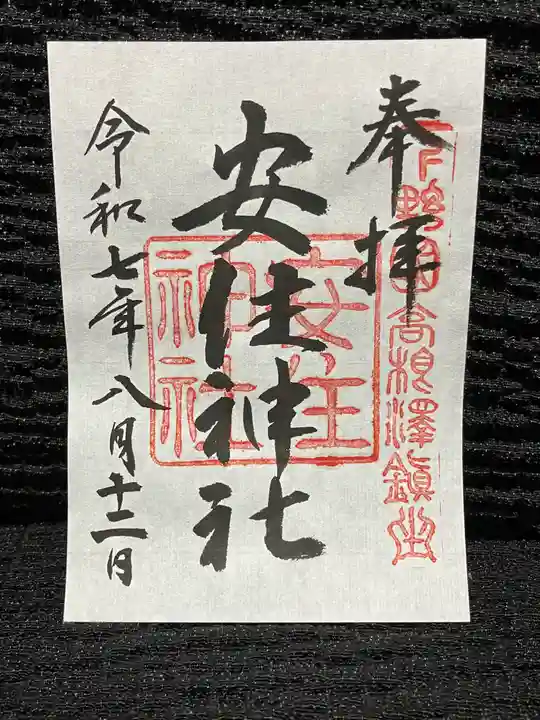 奉拝
下野国高根澤鎮坐
安住神社
安住
神社
令和七年八月十二日